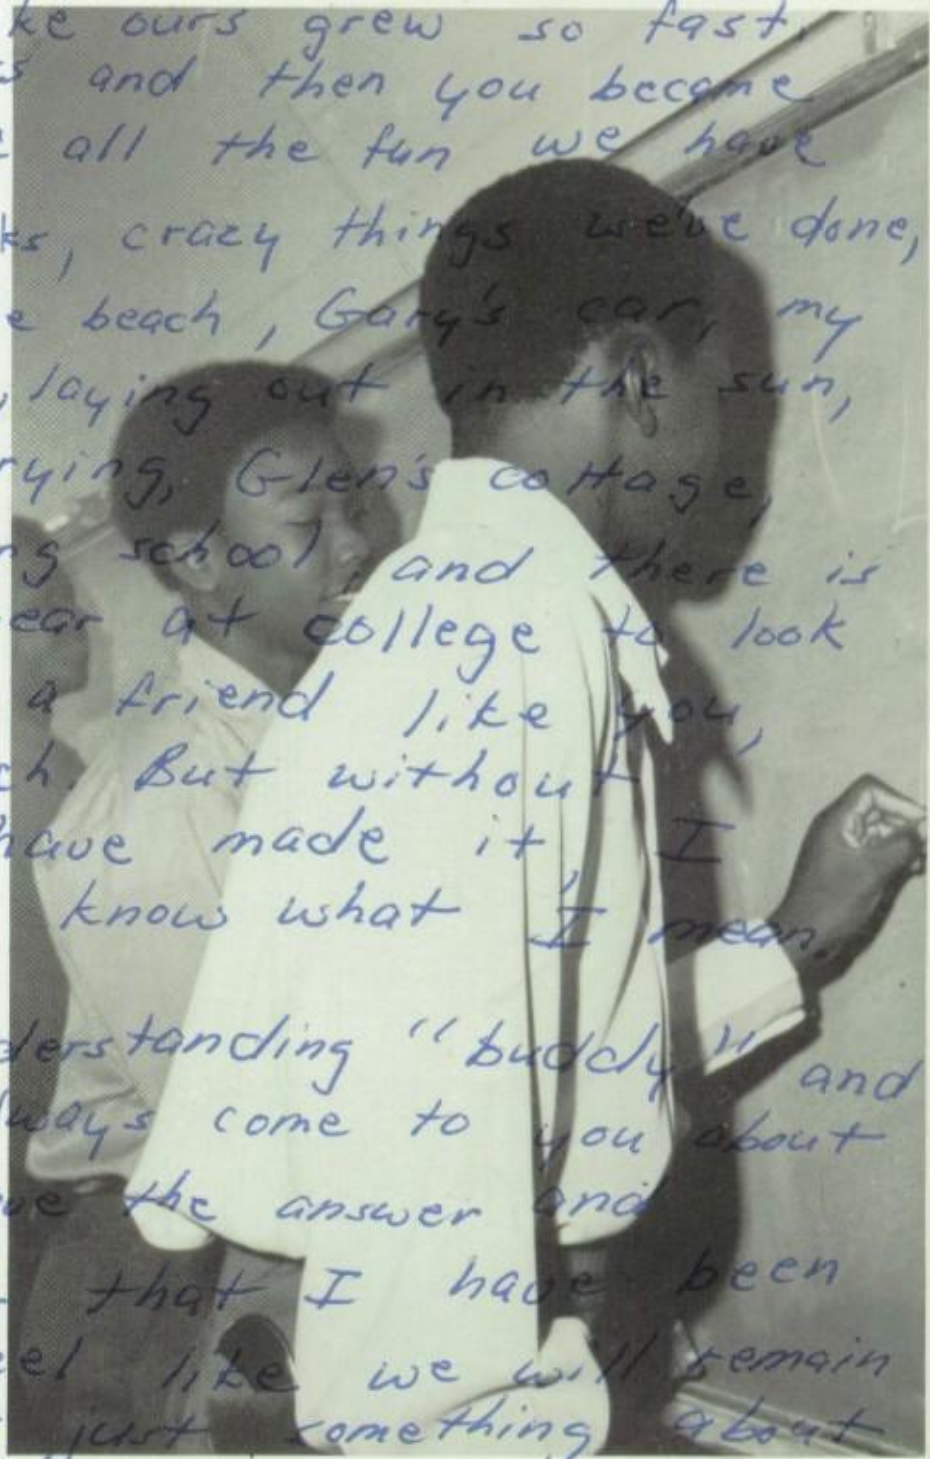 ke ours grew so fast.
s and then you became
e all the fun we have
ks, crazy things we've done,
e beach, Gary's car, my
, laying out in the sun,
rying, Glen's cottage,
ng school, and there is
ear at college to look
a friend like you,
ch. But without
have made it, I
know what I mean.
derstanding "buddy" and
lways come to you about
ve the answer and
that I have been
eel like we will remain
just something about